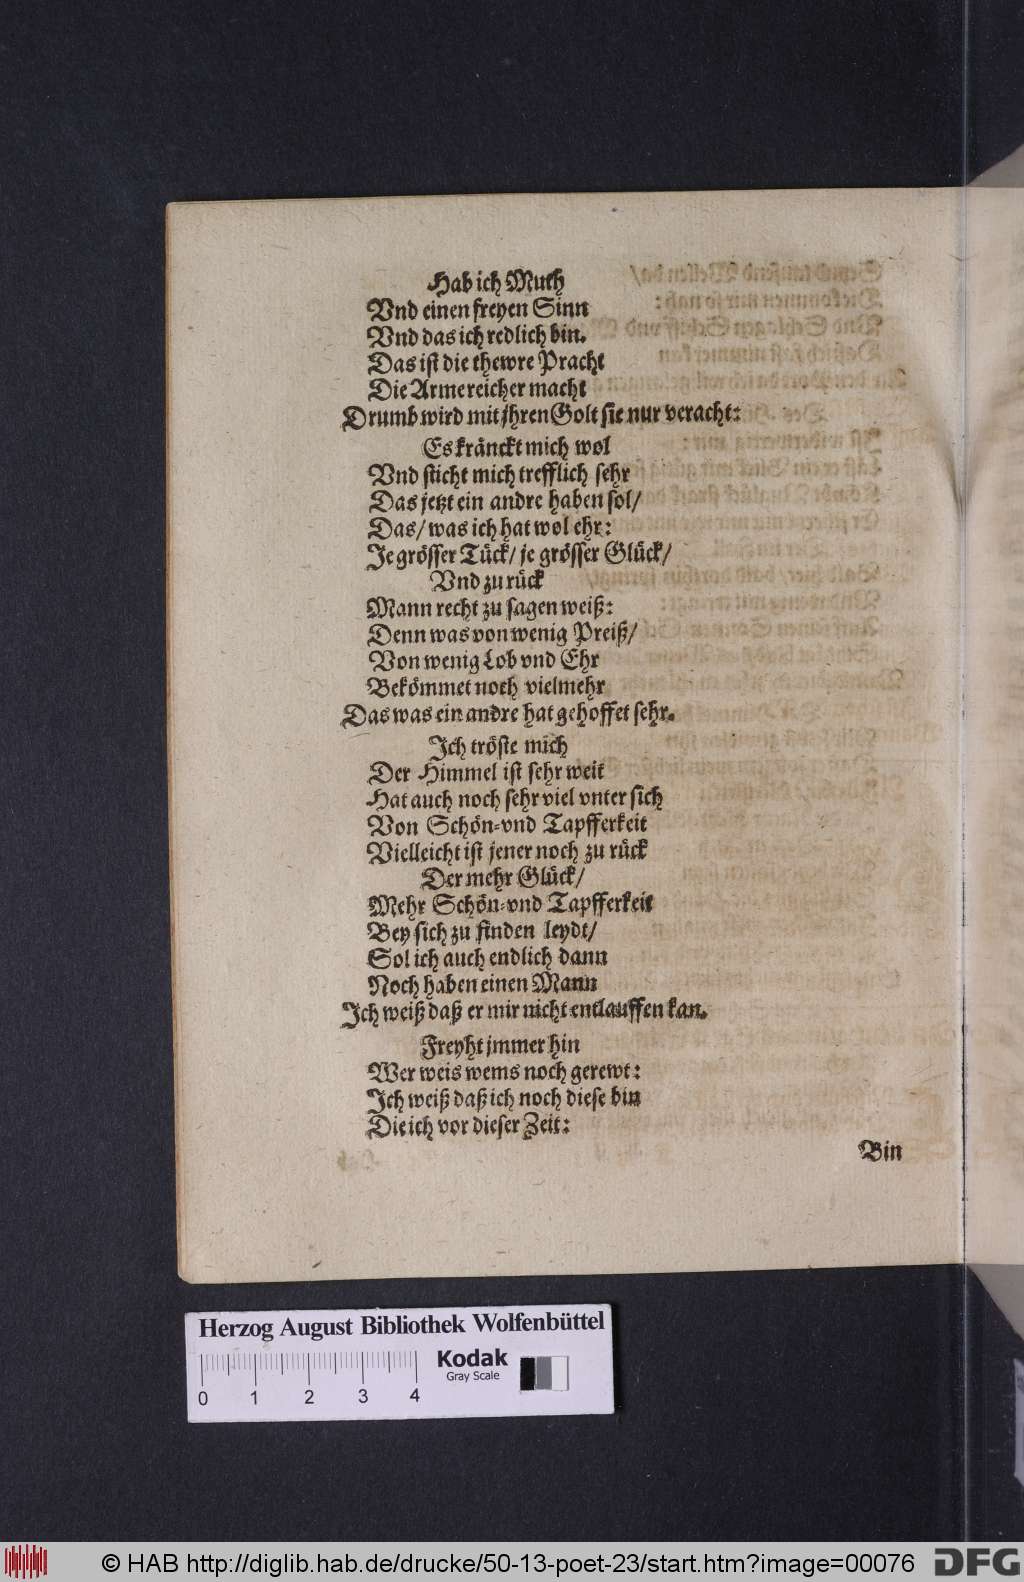 Hab ich Muth
Vnd einen freyen Sinn
Vnd das ich redlich bin.
Das ist die thewre Pracht
Die Arme reicher macht
Drumb wird mit jhren Golt sie nur veracht:
Es kränckt mich wol
Vnd sticht mich trefflich sehr
Das jetzt ein andre haben sol/
Das/ was ich hat wol ehr:
Je grösser Tück/ je grösser Glück/
Vnd zu rück
Mann recht zu sagen weiß:
Denn was von wenig Preiß/
Von wenig Lob vnd Ehr
Bekömmet noch vielmehr
Das was ein andre hat gehoffet sehr.
Ich tröste mich
Der Himmel ist sehr weit
Hat auch noch sehr viel vnter sich
Von Schön-vnd Tapfferkeit
Vielleicht ist jener noch zu rück
Der mehr Glück/
Mehr Schön-vnd Tapfferkeit
Bey sich zu finden leydt/
Sol ich auch endlich dann
Noch haben einen Mann
Ich weiß daß er mir nicht entlauffen kan.
Freyht jmmer hin
Wer weis wems noch gerewt:
Ich weiß daß ich noch diese bin
Die ich vor dieser Zeit:
Bin
Herzog August Bibliothek Wolfenbüttel
Kodak
Gray Scale
0 1 2 3 4
© HAB http://diglib.hab.de/drucke/50-13-poet-23/start.htm?image=00076
DFG